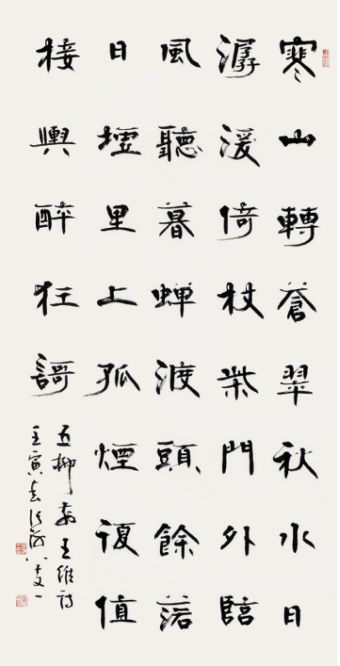 寒山轉蒼翠秋水日
潺湲倚杖柴門外臨
風聽暮蟬渡頭餘落
日墟里上孤煙復值
接輿醉狂謌
五柳前王維詩
壬寅